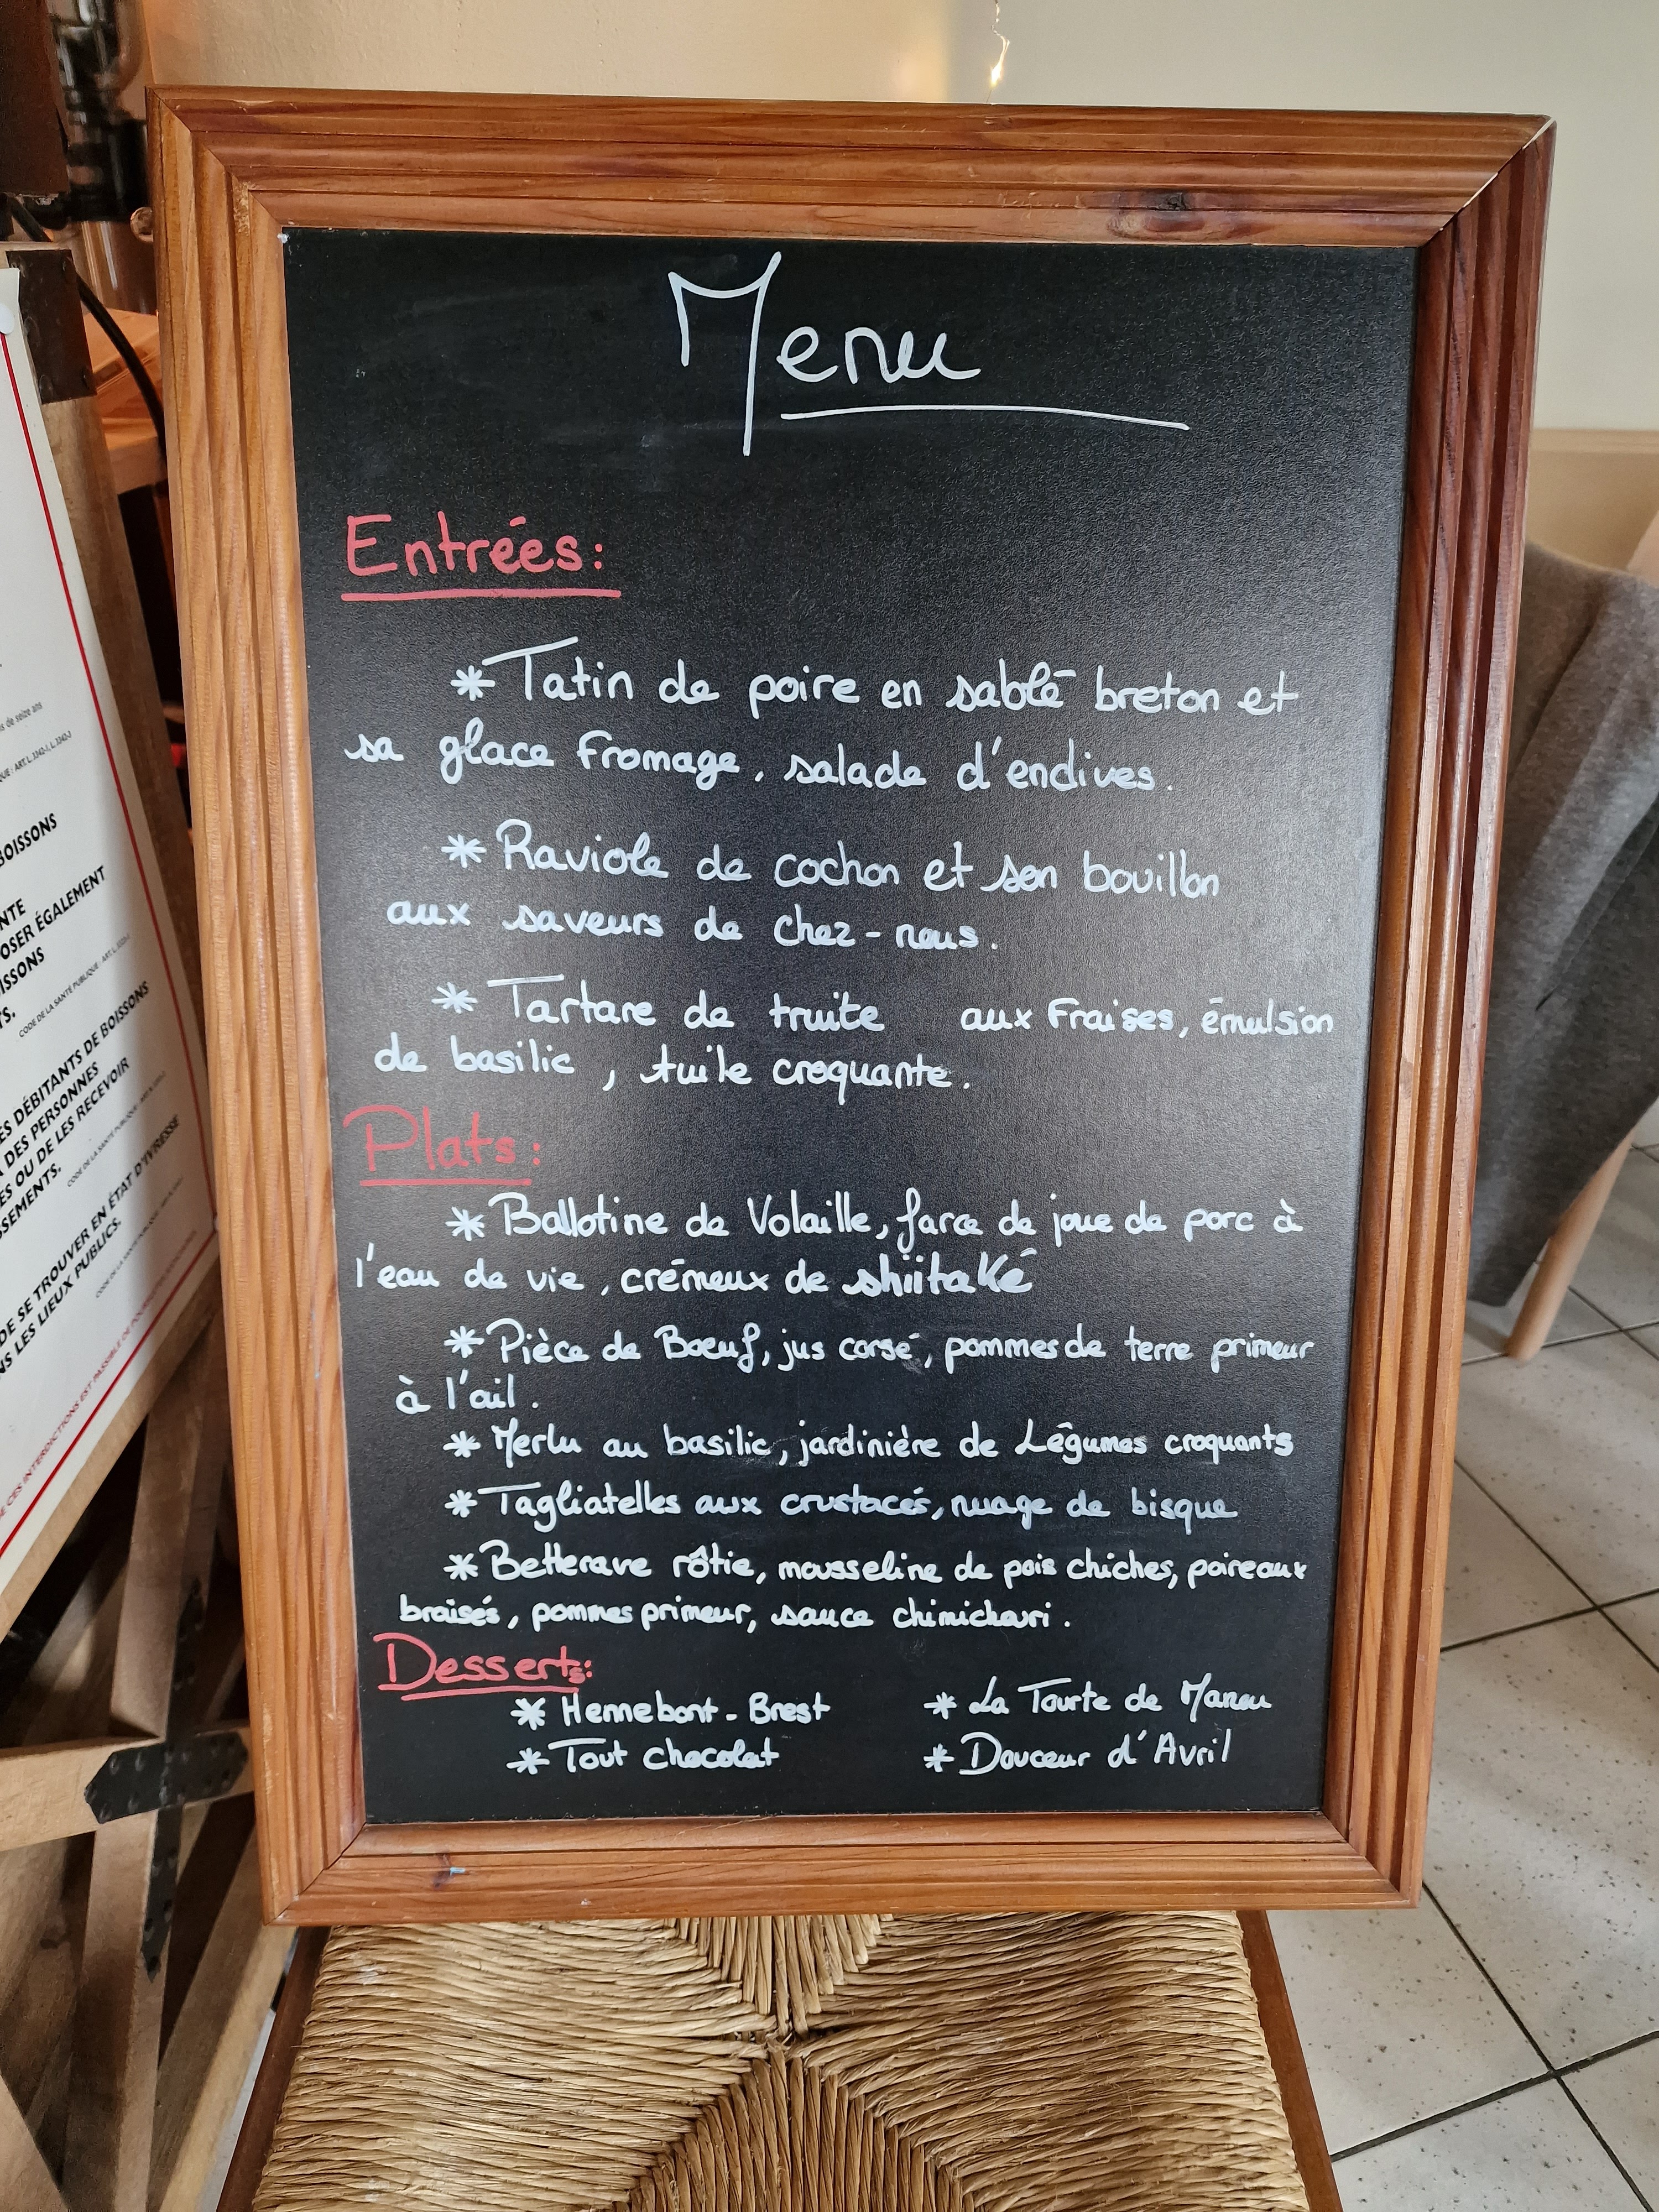 Menu
Entrées:
* Tatin de poire en sablé breton et
sa glace fromage, salade d'endives.
* Raviole de cochon et son bouillon
aux saveurs de chez-nous.
* Tartare de truite aux Fraises, émulsion
de basilic, tuile croquante.
Plats:
* Ballotine de Volaille, farce de joue de porc à
l'eau de vie, crémeux de shiitaké
* Pièce de Boeuf, jus corsé, pommes de terre primeur
à l'ail.
* Merlu au basilic, jardinière de Légumes croquants
* Tagliatelles aux crustacés, nuage de bisque
* Betterave rôtie, mousseline de pois chiches, poireaux
braisés, pommes primeur, sauce chimichurri.
Desserts:
* Hennebont - Brest
* La Tourte de Manou
* Tout chocolat
* Douceur d'Avril
BOISSONS
OSER ÉGALEMENT
CODE DE LA SANTÉ PUBLIQUE
DÉBITANTS DE BOISSONS
DES PERSONNES
OU DE LES RECEVOIR
DE SE TROUVER EN ÉTAT D'IVRESSE
LES LIEUX PUBLICS.
CES INTERDICTIONS EST PASSIBLE DE